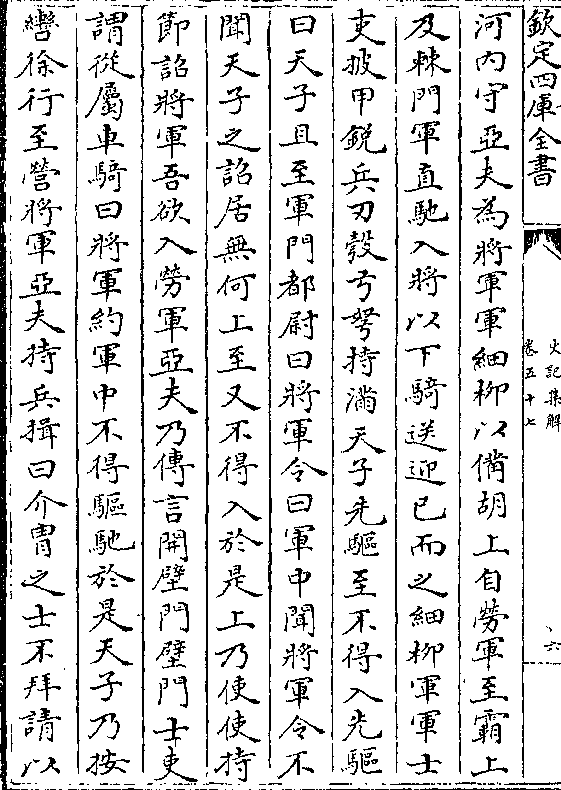 欽定四庫全書
史記集解
卷五十七
六
河内守亞夫為將軍軍細柳以備胡上自勞軍至霸上
及棘門軍直馳入將以下騎送迎已而之細柳軍軍士
吏披甲鋭兵刃彀弓弩持滿天子先驅至不得入先驅
曰天子且至軍門都尉曰將軍令曰軍中聞將軍令不
聞天子之詔居無何上至又不得入於是上乃使使持
節詔將軍吾欲入勞軍亞夫乃傳言開壁門壁門士吏
謂從屬車騎曰將軍約軍中不得驅馳於是天子乃按
轡徐行至營將軍亞夫持兵揖曰介胄之士不拜請以